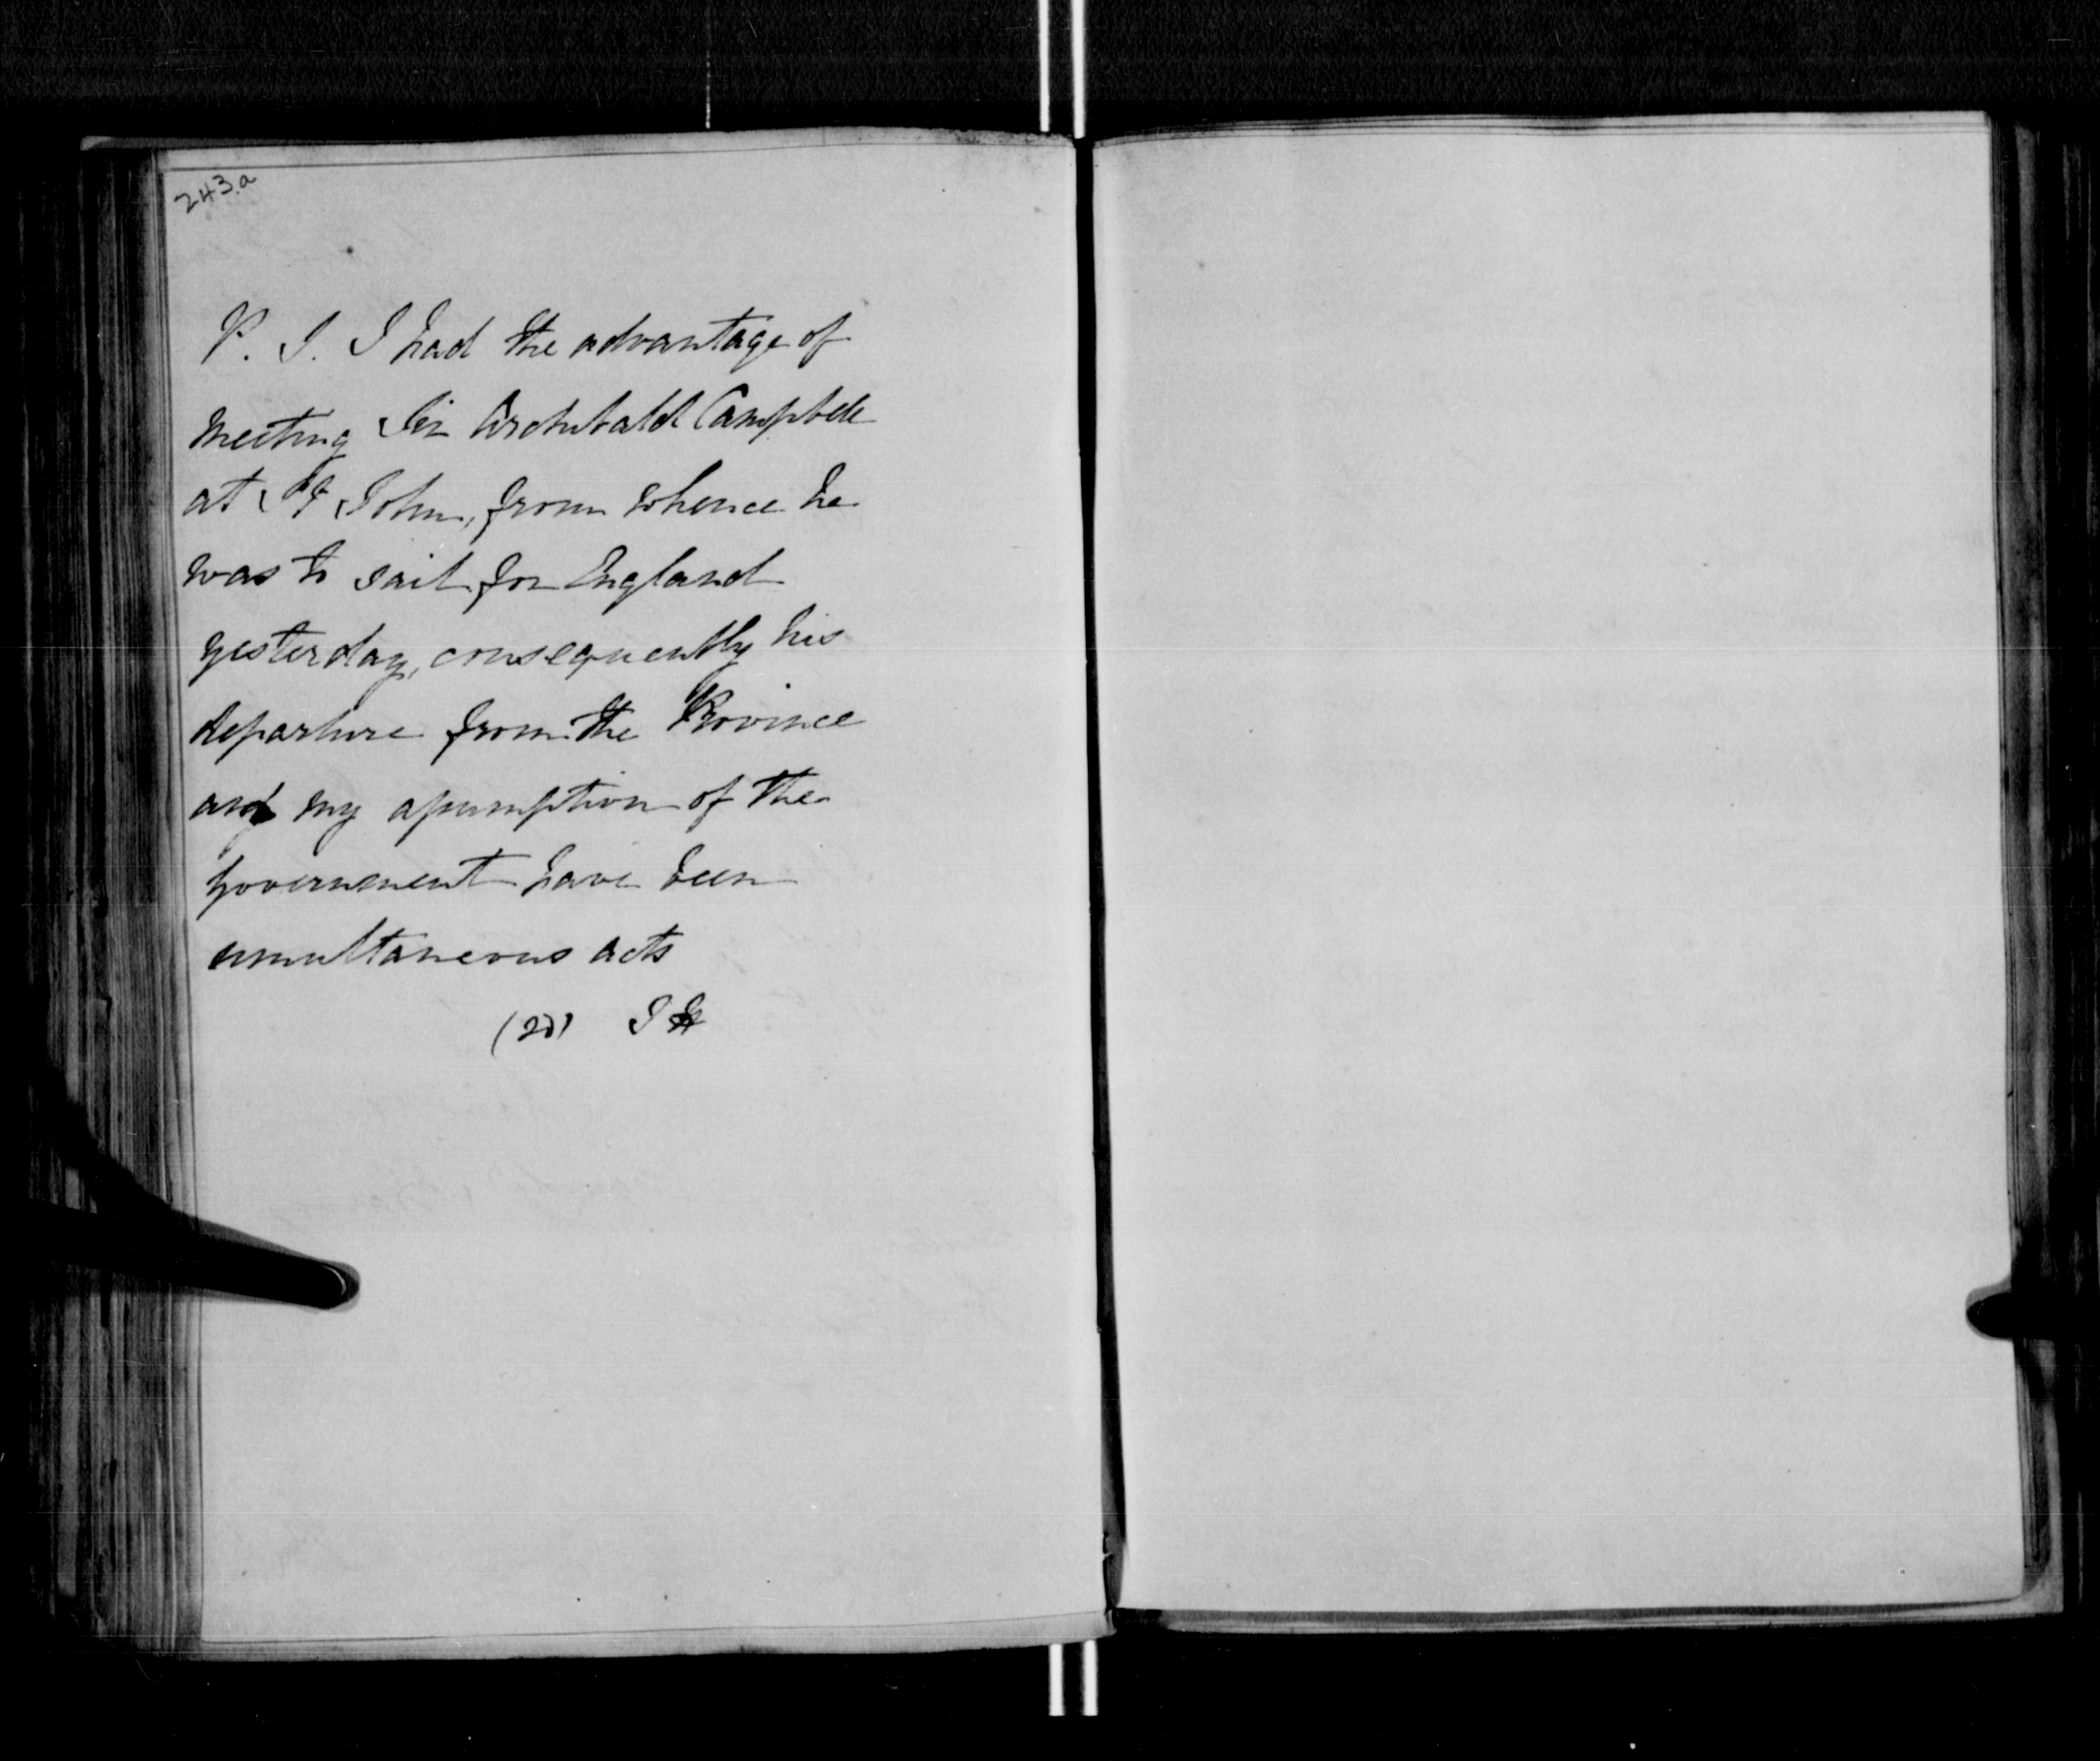 243.a
P. S. I had the advantage of
meeting Sir Archibald Campbell
at St John, from whence he
was to sail for England
yesterday, consequently his
departure from the Province
and my assumption of the
Government have been
simultaneous acts
(sd) J H